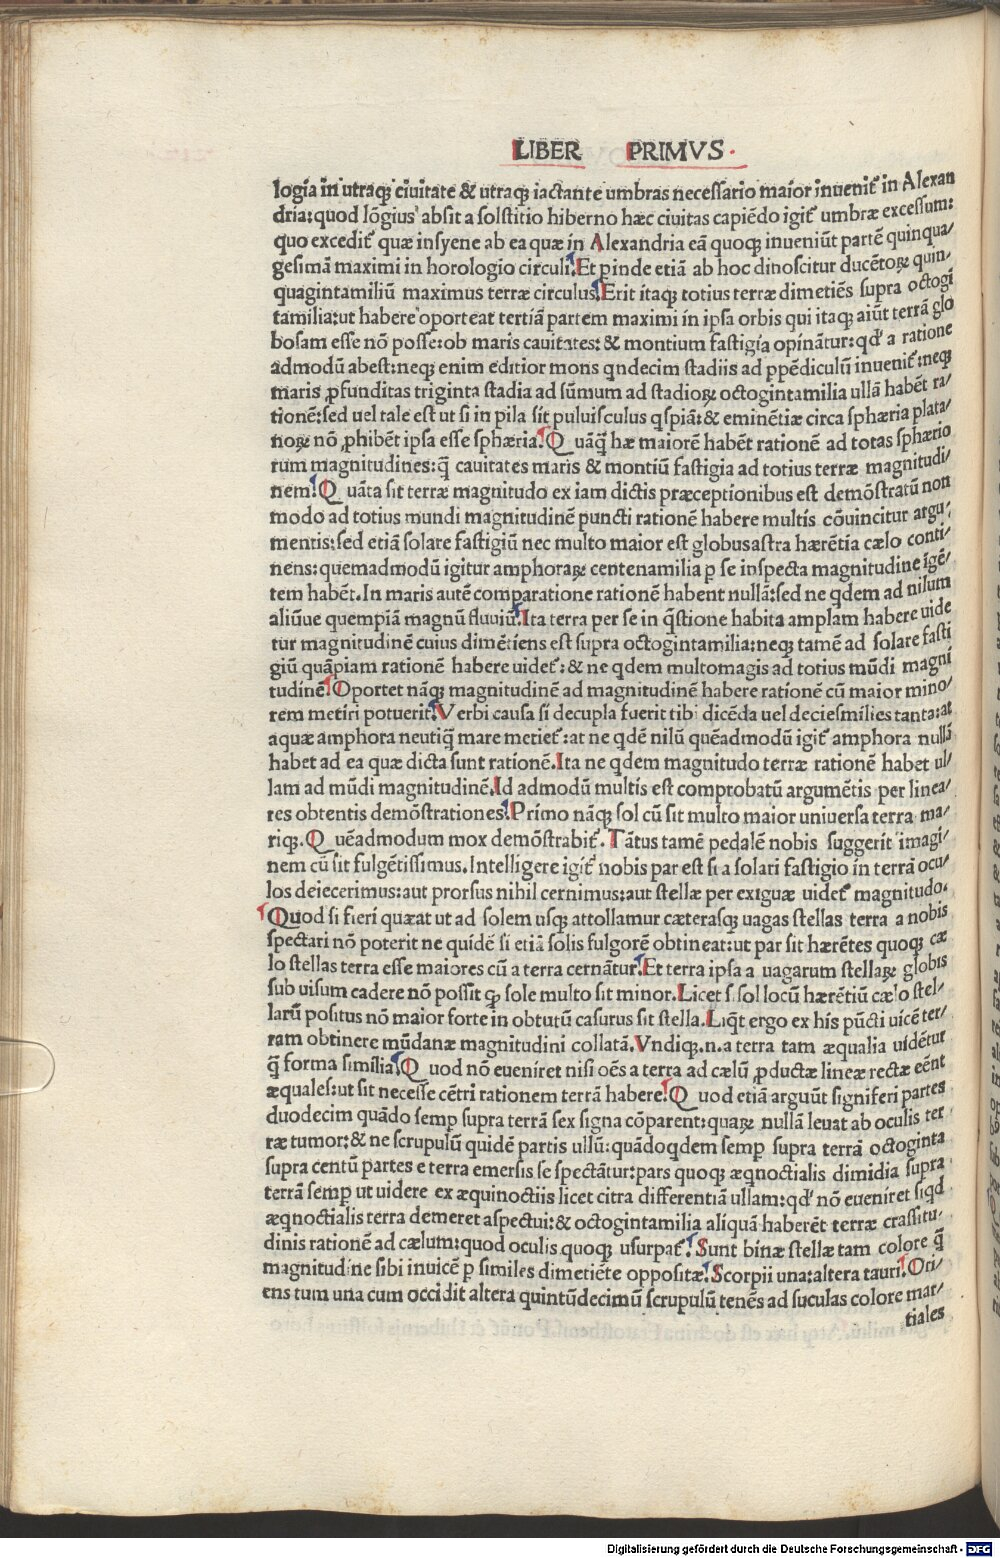 LIBER PRIMVS.
logia in utraq; ciuitate & utraq; iactante umbras necessario maior inuenit᷑ in Alexan
dria: quod lõgius absit a solstitio hiberno hæc ciuitas capiẽdo igit᷑ umbræ excessum:
quo excedit᷑ quæ insyene ab ea quæ in Alexandria eã quoq; inueniũt partẽ quinqua/
gesimã maximi in horologio circuli. Et ꝓinde etiã ab hoc dinoscitur ducẽtoꝝ quin/
quagintamiliũ maximus terræ circulus. Erit itaq; totius terræ dimetiẽs supra octogi
tamilia: ut habere oporteat tertiã partem maximi in ipsa orbis qui itaq; aiũt terrã glo
bosam esse nõ posse: ob maris cauitates: & montium fastigia opinãtur: qđ a ratione
admodũ abest: neq; enim editior mons qndecim stadiis ad ꝑpẽdiculũ inuenit᷑: neq;
maris ꝓfunditas triginta stadia ad sũmum ad stadioꝝ octogintamilia ullã habẽt ra/
tionẽ: sed uel tale est ut si in pila sit puluisculus qspiã: & eminẽtiæ circa sphæria plata/
noꝝ nõ ꝓhibẽt ipsa esse sphæria. Q uãq̃ hæ maiorẽ habẽt rationẽ ad totas sphærio
rum magnitudines: q̃ cauitates maris & montiũ fastigia ad totius terræ magnitudi/
nem. Q uãta sit terræ magnitudo ex iam dictis præceptionibus est demõstratũ non
modo ad totius mundi magnitudinẽ puncti rationẽ habere multis cõuincitur argu/
mentis: sed etiã solare fastigiũ nec multo maior est globus astra hærẽtia cælo conti/
nens: quemadmodũ igitur amphoraꝝ centenamilia ꝑ se inspecta magnitudine igẽ/
tem habẽt. In maris autẽ comparatione rationẽ habent nullã: sed ne qdem ad nilum
aliũue quempiã magnũ fluuiũ. Ita terra per se in q̃stione habita amplam habere uide
tur magnitudinẽ cuius dimẽtiens est supra octogintamilia: neq; tamẽ ad solare fasti
giũ quãpiam rationẽ habere uidet᷑: & ne qdem multomagis ad totius mũdi magni
tudinẽ. Oportet nãq; magnitudinẽ ad magnitudinẽ habere rationẽ cũ maior mino/
rem metiri potuerit. Verbi causa si decupla fuerit tibi dicẽda uel deciesmilies tanta: at
aquæ amphora neutiq̃ mare metiet᷑: at ne qdẽ nilũ quẽadmodũ igit᷑ amphora nullã
habet ad ea quæ dicta sunt rationẽ. Ita ne qdem magnitudo terræ rationẽ habet ul/
lam ad mũdi magnitudinẽ. Id admodũ multis est comprobatũ argumẽtis per linea/
res obtentis demõstrationes. Primo nãq; sol cũ sit multo maior uniuersa terra ma/
riq;. Q uẽadmodum mox demõstrabit᷑. Tãtus tamẽ pedalẽ nobis suggerit imagi/
nem cũ sit fulgẽtissimus. Intelligere igit᷑ nobis par est si a solari fastigio in terrã ocu/
los deiecerimus: aut prorsus nihil cernimus: aut stellæ per exiguæ uidet᷑ magnitudo.
Quod si fieri quæat ut ad solem usq; attollamur cæterasq; uagas stellas terra a nobis
spectari nõ poterit ne quidẽ si etiã solis fulgorẽ obtineat: ut par sit hærẽtes quoq; cæ
lo stellas terra esse maiores cũ a terra cernãtur. Et terra ipsa a uagarum stellaꝝ globis
sub uisum cadere nõ possit qꝫ sole multo sit minor. Licet .s. sol locũ hærẽtiũ cælo stel/
larũ positus nõ maior forte in obtutũ casurus sit stella. Liq̃t ergo ex his pũcti uicẽ ter/
ram obtinere mũdanæ magnitudini collatã. Vndiq;.n.a terra tam æqualia uidẽtur
q̃ forma similia. Q uod nõ eueniret nisi oẽs a terra ad cælũ ꝓductæ lineæ rectæ eẽnt
æquales: ut sit necesse cẽtri rationem terrã habere. Q uod etiã arguũt signiferi partes
duodecim quãdo semꝑ supra terrã sex signa cõparent: quaꝝ nullã leuat ab oculis ter
ræ tumor: & ne scrupulũ quidẽ partis ullũ: quãdoqdem semꝑ supra terrã octoginta
supra centũ partes e terra emersis se spectãtur: pars quoq; æqnoctialis dimidia supra
terrã semꝑ ut uidere ex æquinoctiis licet citra differentiã ullam: qđ nõ eueniret siqd
æqnoctialis terra demeret aspectui: & octogintamilia aliquã haberẽt terræ crassitu/
dinis rationẽ ad cælum: quod oculis quoq; usurpat᷑. Sunt binæ stellæ tam colore q̃
magnitudine sibi inuicẽ ꝑ similes dimetiẽte oppositæ. Scorpii una: altera tauri. Ori/
ens tum una cum occidit altera quintũdecimũ scrupulũ tenẽs ad suculas colore mar/
tiales
Digitalisierung gefördert durch die Deutsche Forschungsgemeinschaft - DFG